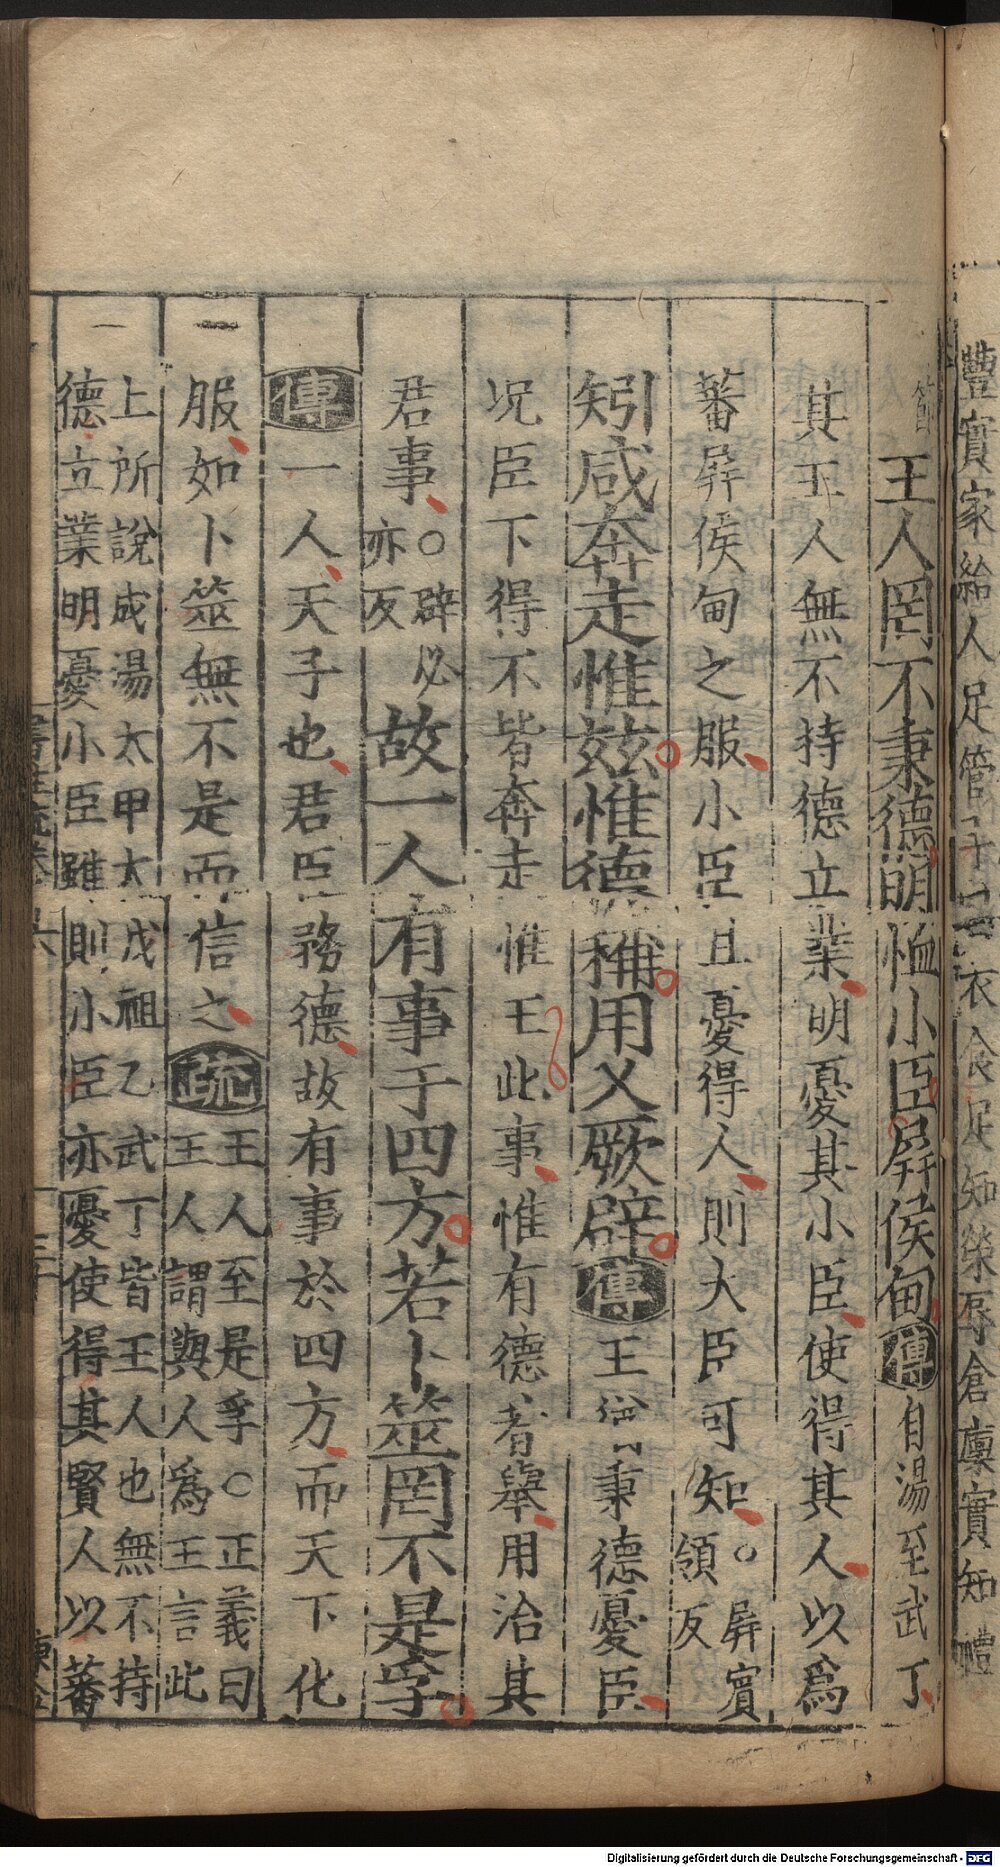 豐實家給人足管子曰衣食足知榮辱倉廩實知禮
節
王人罔不秉德明恤小臣屏侯甸傳自湯至武丁
其王人無不持德立業明憂其小臣使得其人以爲
蕃屏侯甸之服小臣且憂得人則大臣可知。屏賓領反
矧咸奔走惟玆惟德稱用乂厥辟傳王猶秉德憂臣
況臣下得不皆奔走惟王此事惟有德者舉用治其
君事○辟必亦反故一人有事于四方若卜筮罔不是孚
傳一人天子也君臣務德故有事於四方而天下化
服如卜筮無不是而信之疏王人至是孚○正義曰
王人謂與人爲王言此
上所說成湯太甲太戊祖乙武丁皆王人也無不持
德立業明憂小臣雖則小臣亦憂使得其賢人以蕃
Digitalisierung gefördert durch die Deutsche Forschungsgemeinschaft - DFG